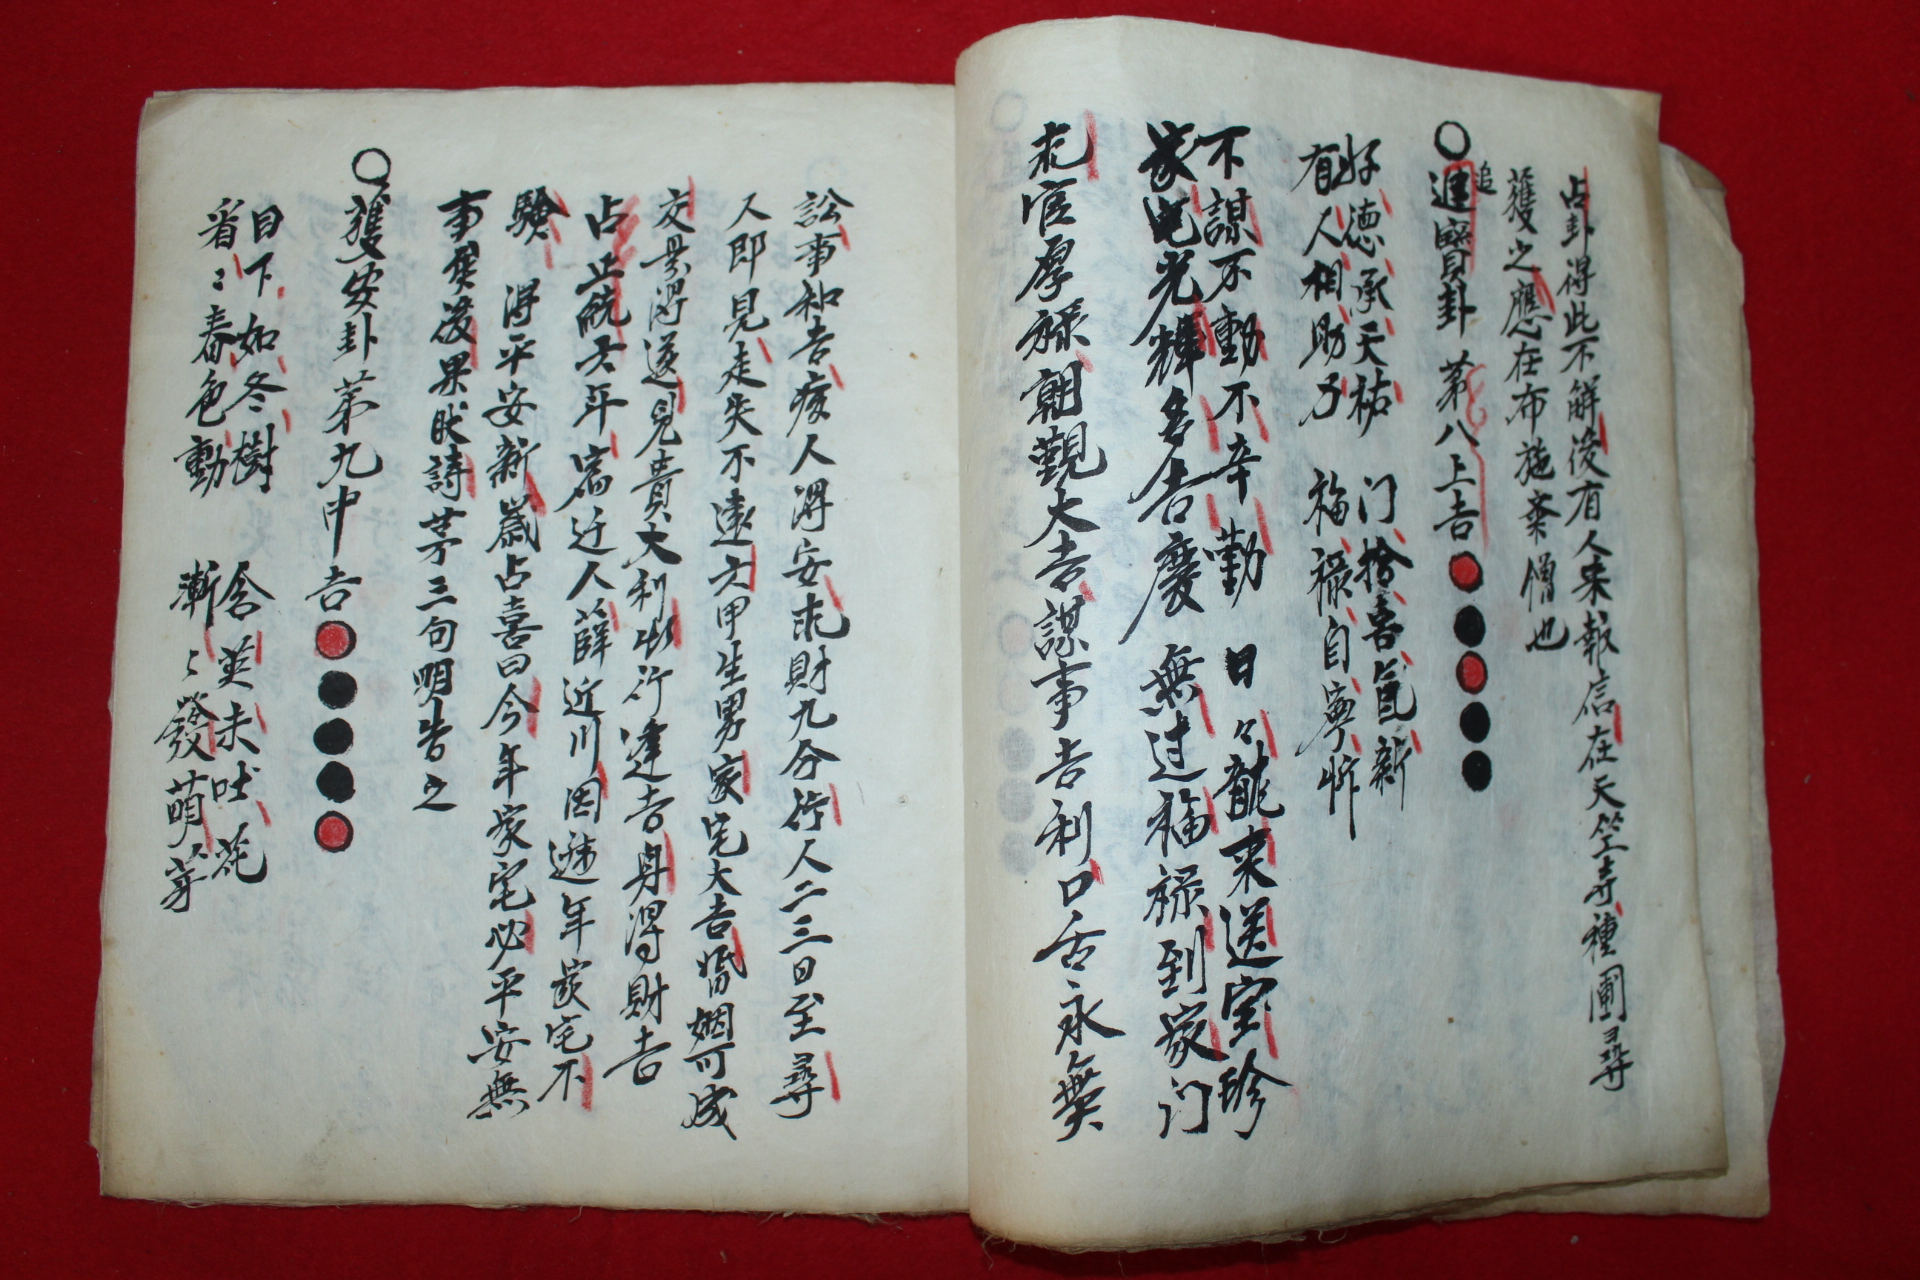 占卦得此不解後有人来報信在天竺寺種園尋
獲之應在布施齋僧也
追
進寶卦 第八上吉
好德承天祐 门拾喜氣新
有人相助力 福禄自寧忻
不謀不動不辛勤 日々龍来送宝珍
家宅光輝多吉慶 無过福禄到家门
求官厚禄朝觀大吉謀事吉利口舌永無
訟事和吉疾人得安求財九分行人二三日至尋
人即見走失不遠六甲生男家宅大吉婚姻可成
交易得遂見貴大利出行逢吉身得財吉
占正統六年寓近人薛近川因遞年家宅不
驗 得平安新歳占喜曰今年家宅必平安無
事異後果此詩苐三句明告之
獲安卦 苐九中吉
目下如冬樹 含英未吐花
看〻春色動 漸〻發萌芽